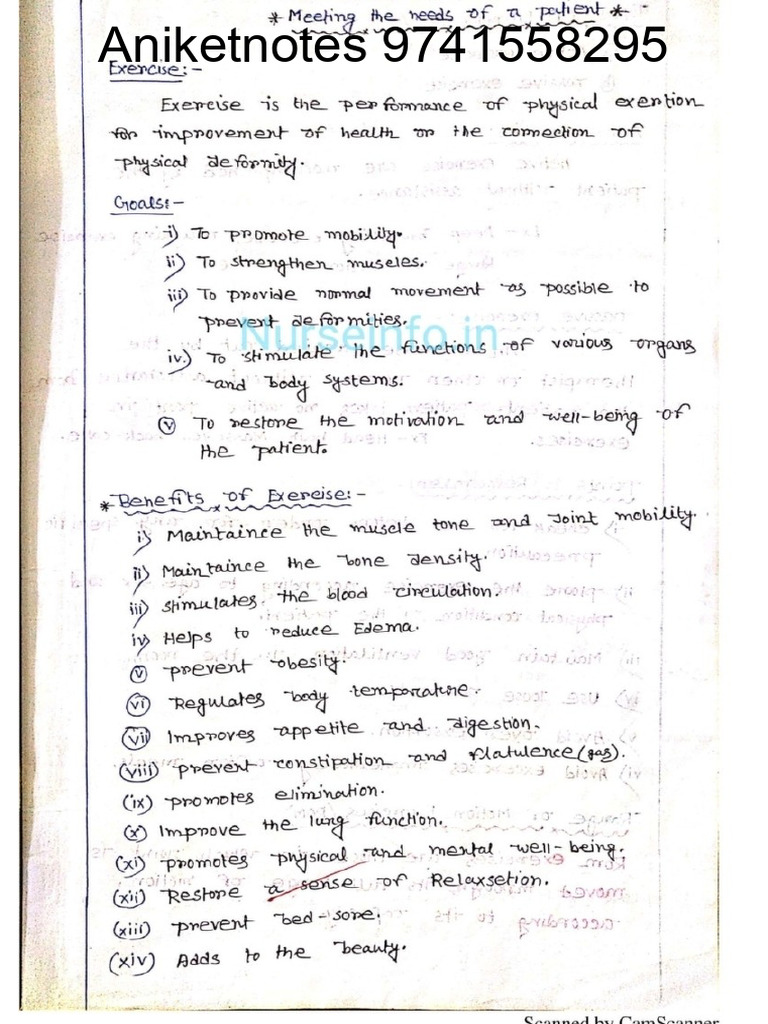 * Meeting the needs of a patient *
Aniketnotes 9741558295
Exercise:-
Exercise is the performance of physical exertion
for improvement of health or the correction of
physical deformity.
Goals:-
i) To promote mobility.
ii) To strengthen muscles.
iii) To provide normal movement as possible to
prevent deformities.
Nurseinfo.in
iv.) To stimulate the functions of various organs
and body systems.
(v) To restore the motivation and well-being of
the patient.
* Benefits of Exercise:-
i) Maintaince the muscle tone and Joint mobility.
ii) Maintaince the bone density.
iii) stimulates the blood circulation.
iv) Helps to reduce Edema.
(v) prevent obesity.
(vi) Regulates body temporature.
(vii) Improves appetite and digestion.
(viii) prevent constipation and flatulence (gas).
(ix) promotes elimination.
(x) Improve the lung function.
(xi) promotes physical and mental well-being.
(xii) Restore a sense of Relaxsetion.
(xiii) prevent bed-sore.
(xiv) Adds to the beauty.
Scanned by CamScanner